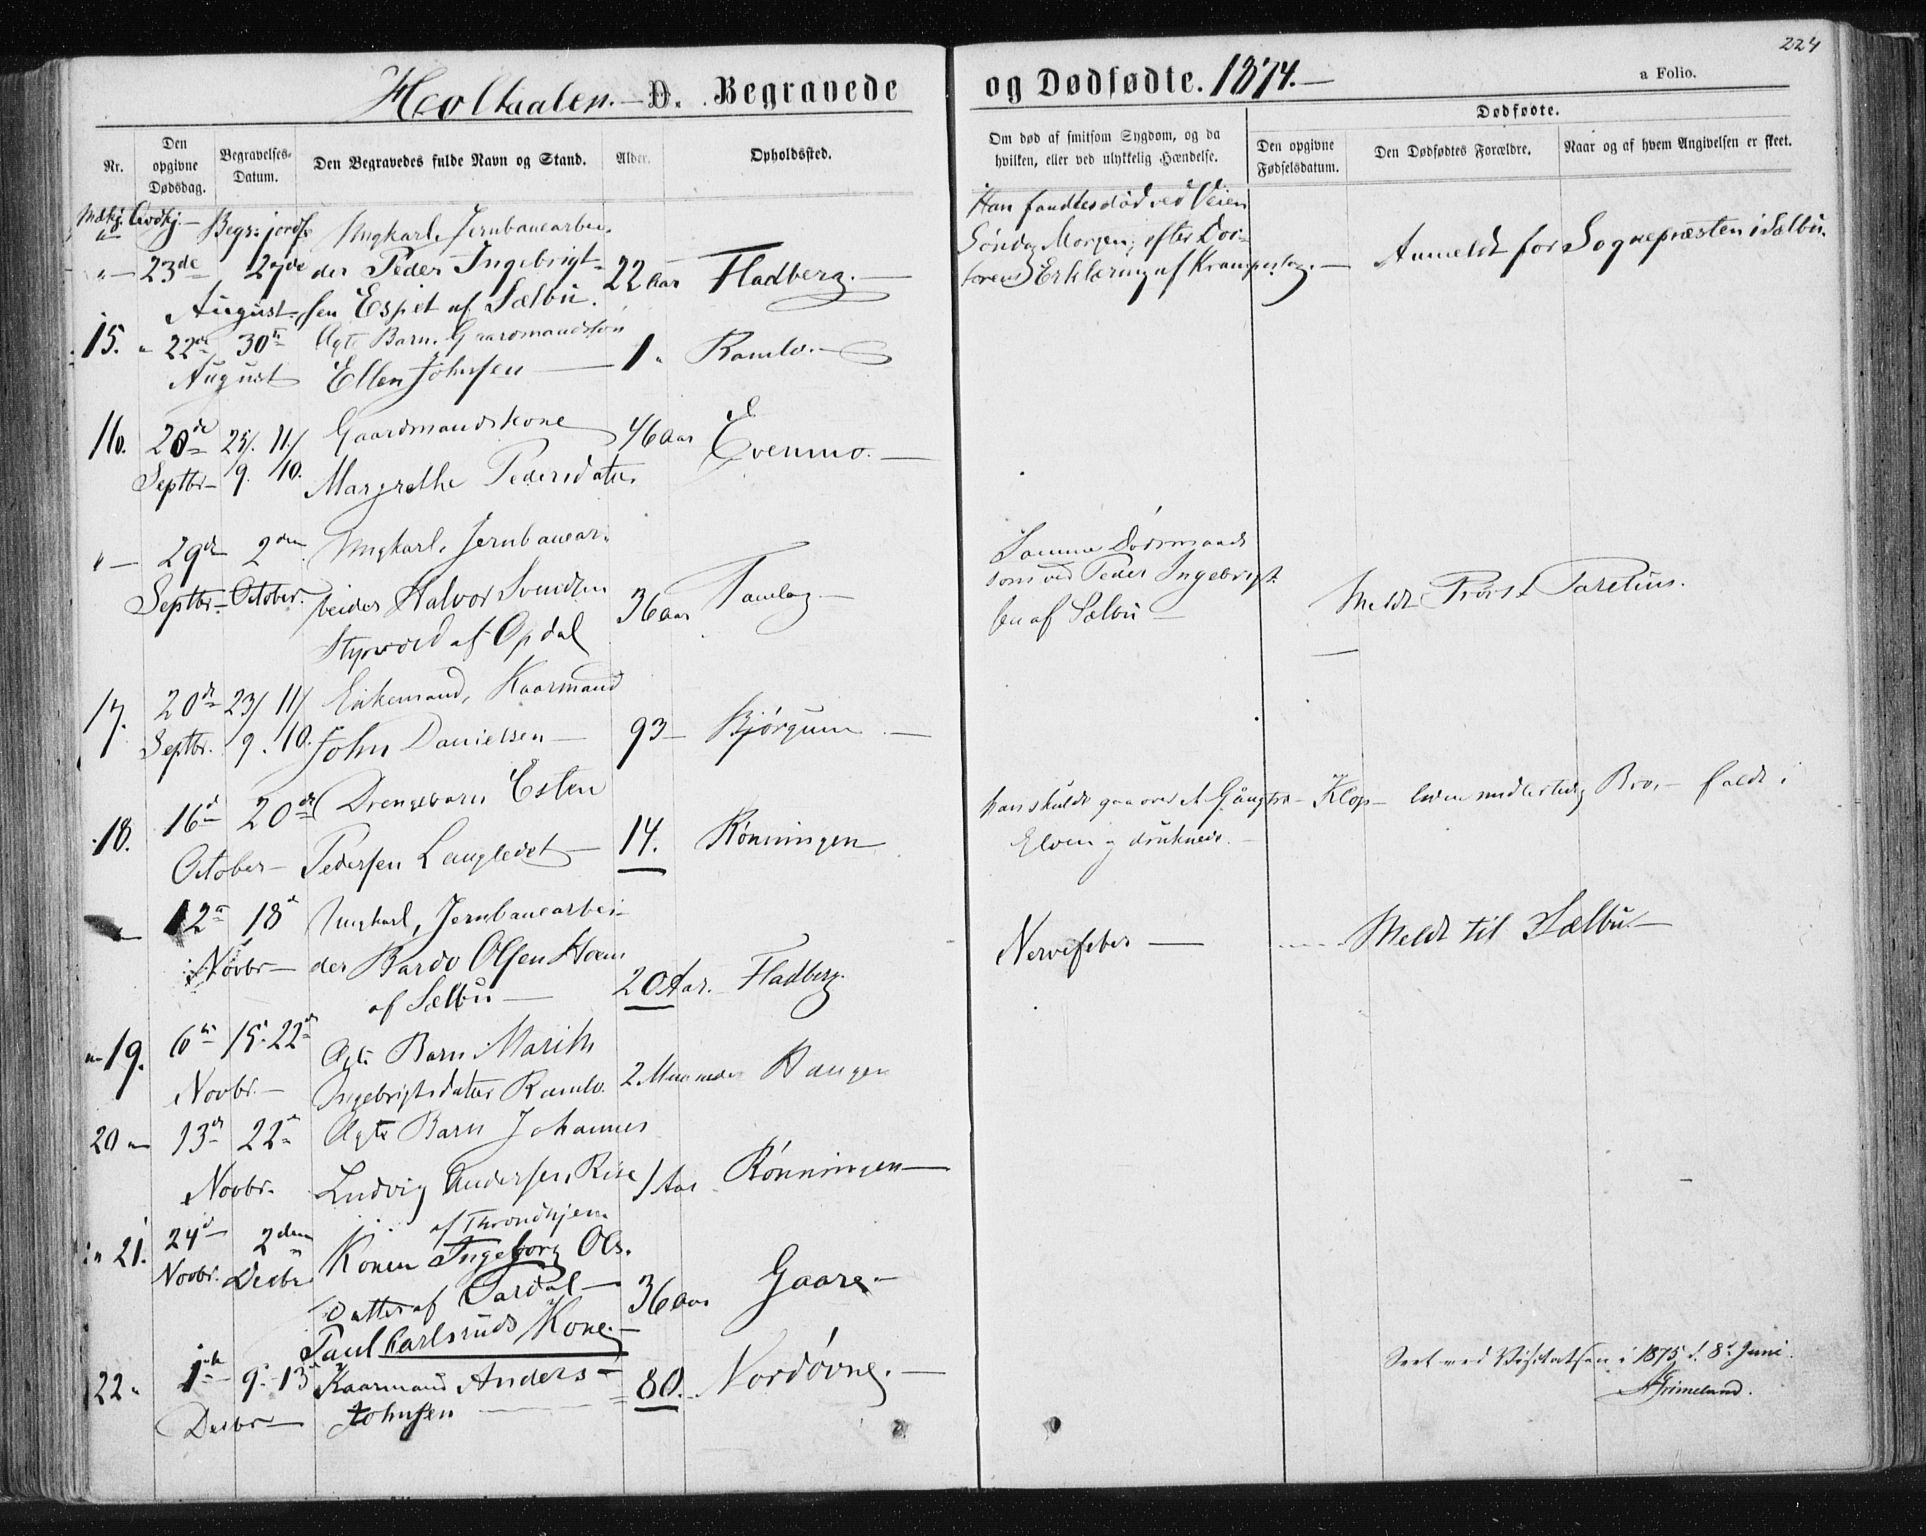 224
Holtaalen. — D. Begravede og Dødfødte. 1874. —
a Folio.
Nr.
Den opgivne Dødsdag.
Begravelses-Datum.
Den Begravedes fulde Navn og Stand.
Alder.
Opholdssted.
Om død af smitsom Sygdom, og da hvilken, eller ved ulykkelig Hændelse.
Dødfødte.
Den opgivne Fødselsdatum.
Den Dødfødtes Forældre.
Naar og af hvem Angivelsen er skeet.
Begr: jordf: Ungkarl, Jernbanearbei-
" — 23de 27de der Peder Ingebrigt- 22 Aar Fladberg. —
August sen Espet af Sælbu.
Han fandtes død ved Veien
Søndag Morgen; efter Doc-
torens Erklæring af Krampeslag. — Anmeldt for Sognepræsten i Sælbu.
15. 22de 30te Ægte Barn. Gaardmandssøn
August Ellen Johnsen — 1 " Ramlo. —
16. 20de 25/ 11/ Gaardmandskone 46 Aar Evenmo. —
Septbr. 9. 10. Margrethe Pedersdatter
" — 29de 2den Ungkarl, Jernbanear-
Septbr. October. beider Halvor Svendsen 36 Aar Tamlag —
Styrvold af Opdal
Samme Dødsmaade
som ved Peder Ingebrigt-
sen af Sælbu — Meldt Provst Parelius.
17. 20de 23/ 11/ Enkemand, Kaarmand
Septbr. 9. 10. John Danielsen — 93 — Bjørgum —
18. 16de 20de Drengebarn Esten
October — Pedersen Langledet — 14. Rønningen
han skulde gaa over et Gangtræ — Klop — liden midlertidig Bro, — faldt i
Elven og druknede. —
" 12te 18de Ungkarl, Jernbanearbei-
Novbr — der Bardo Olsen Hoem
af Sælbu — 20 Aar. Fladberg.
Nervefeber — Meldt til Sælbu —
19. 6te 15. 22de Ægte Barn Marith
Novbr. — Ingebrigtsdatter Ramlo. 2 Maaneder Haugen
20 13de 22de Ægte Barn Johannes
Novbr. Ludvig Andersen Rise 1 Aar Rønningen —
af Throndhjem
21. 24de 2den Konen Ingeborg Ols-
Novbr. Decbr datter af 36 Aar Gaare —
Paul Karlsruds Kone. —
22 " 1ste 9. 13de Kaarmand Anders
Decbr — Johnsen — 80. Nordøvne. —
Seet ved Visitatsen i 1875, d. 8de Juni.
Grimelund.